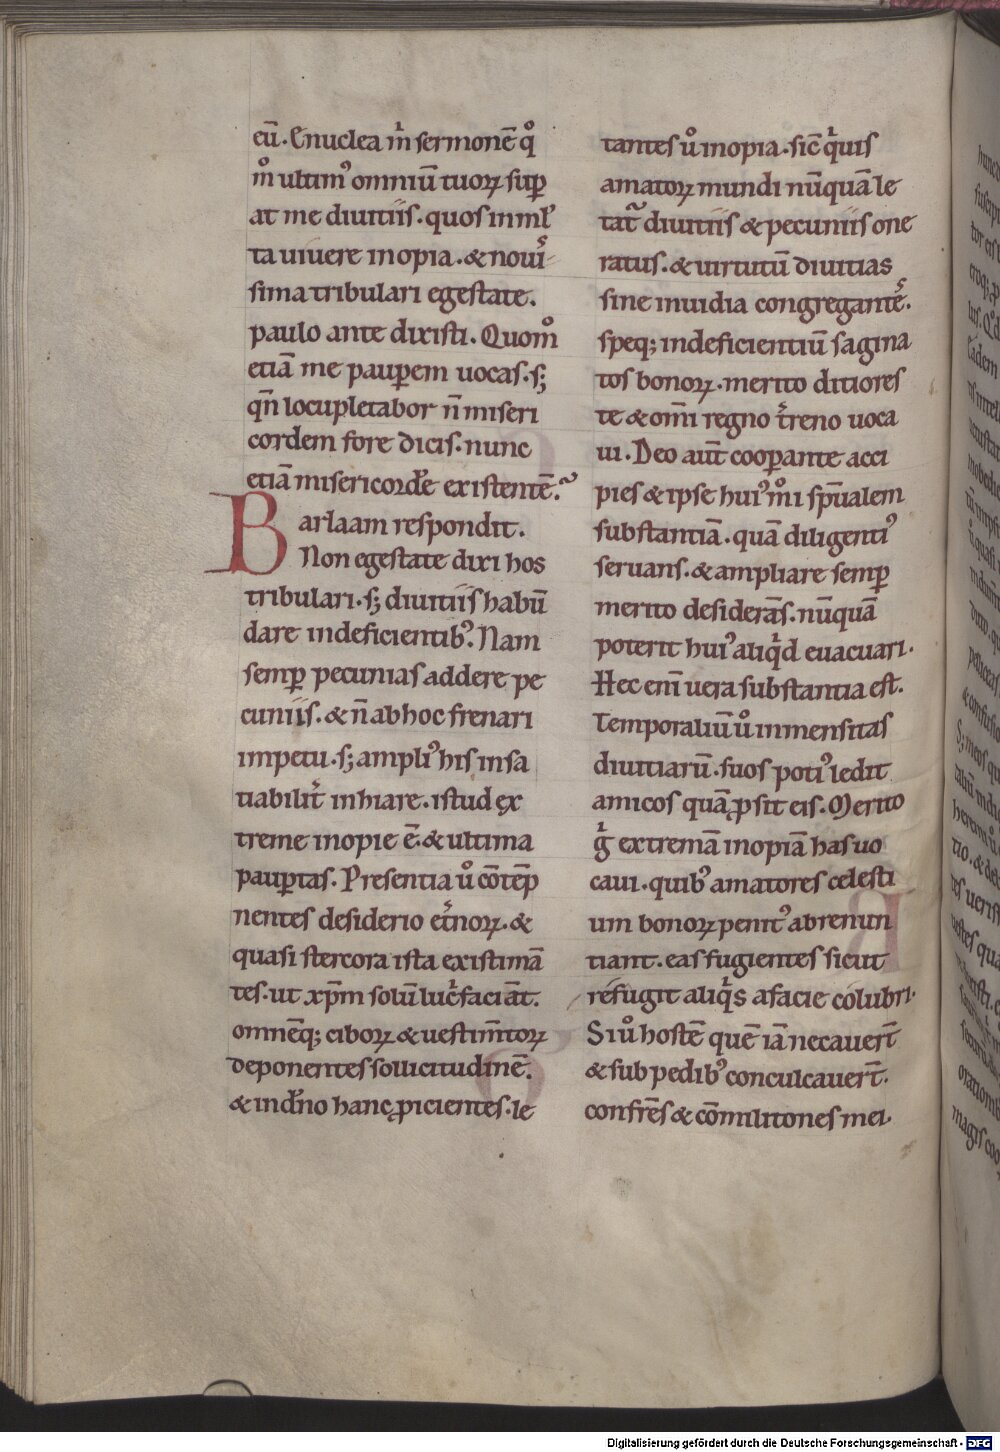 eū. Enuclea m̊ sermonē qͦ
mͦ ultimꝰ omniū tuoꝝ suꝑ
at me diuitiis. quos in ml̓
ta uiuere inopia. & nouı̓-
sima tribulari egestate.
paulo ante dixisti. Quomͦ
etiā me pauꝑem uocas. s;
qn̄ locupletabor n̄ miseri
cordem fore dicis. nunc
etiā misericorde existentē.
Barlaam respondit.
Non egestate dixi hos
tribulari. s; diuitiis habū
dare indeficientibꝰ. Nam
semꝑ pecunias addere pe
cuniis. & n̄ ab hoc frenari
impetu. s; ampliꝰ his insa
tiabilit̓ inhiare. istud ex
treme inopie ē. & ultima
pauꝑtas. Presentia uͦ cōtēp
nentes desiderio et̓noꝝ. &
quasi stercora ista existimā
tes. ut xp̄m solū luc̓faciāt.
omnēq; ciboꝝ & uestim̄toꝝ
deponentes sollicitudinē.
& indr̄no hanc ꝓicientes. le
tantes uͦ inopia. sic̄ qͥuis
amatoꝝ mundi nūquā le
tat᷑ diuitiis & pecuniis one
ratus. & uirtutū diuitias
sine inuidia congregantē.
speq; indeficientiū sagina
tos bonoꝝ. merito ditiores
te & om̄i regno t̓reno uoca
ui. Deo aūt cooꝑante acci
pies & ipse huiꝰmͦi sp̄ualem
substantiā. quā diligentiꝰ
seruans. & ampliare semꝑ
merito desiderās. nūquā
poterit huiꝰ aliqͥd euacuari.
Hec eni̅ uera substantia est.
Temporaliū uͦ inmensitas
diuitiarū. suos potiꝰ ledit
amicos quā ꝓsit eis. Merito
gͥ extremā inopiā has uo
caui. quibꝰ amatores celesti
um bonoꝝ penitꝰ abrenun
tiant. eas fugientes sicut
refugit aliqͥs a facie colubri.
Si uͦ hostē quē iā necauer̄t
& sub pedibꝰ conculcauer̄t.
confrēs & cōmilitones mei.
Digitalisierung gefördert durch die Deutsche Forschungsgemeinschaft - DFG